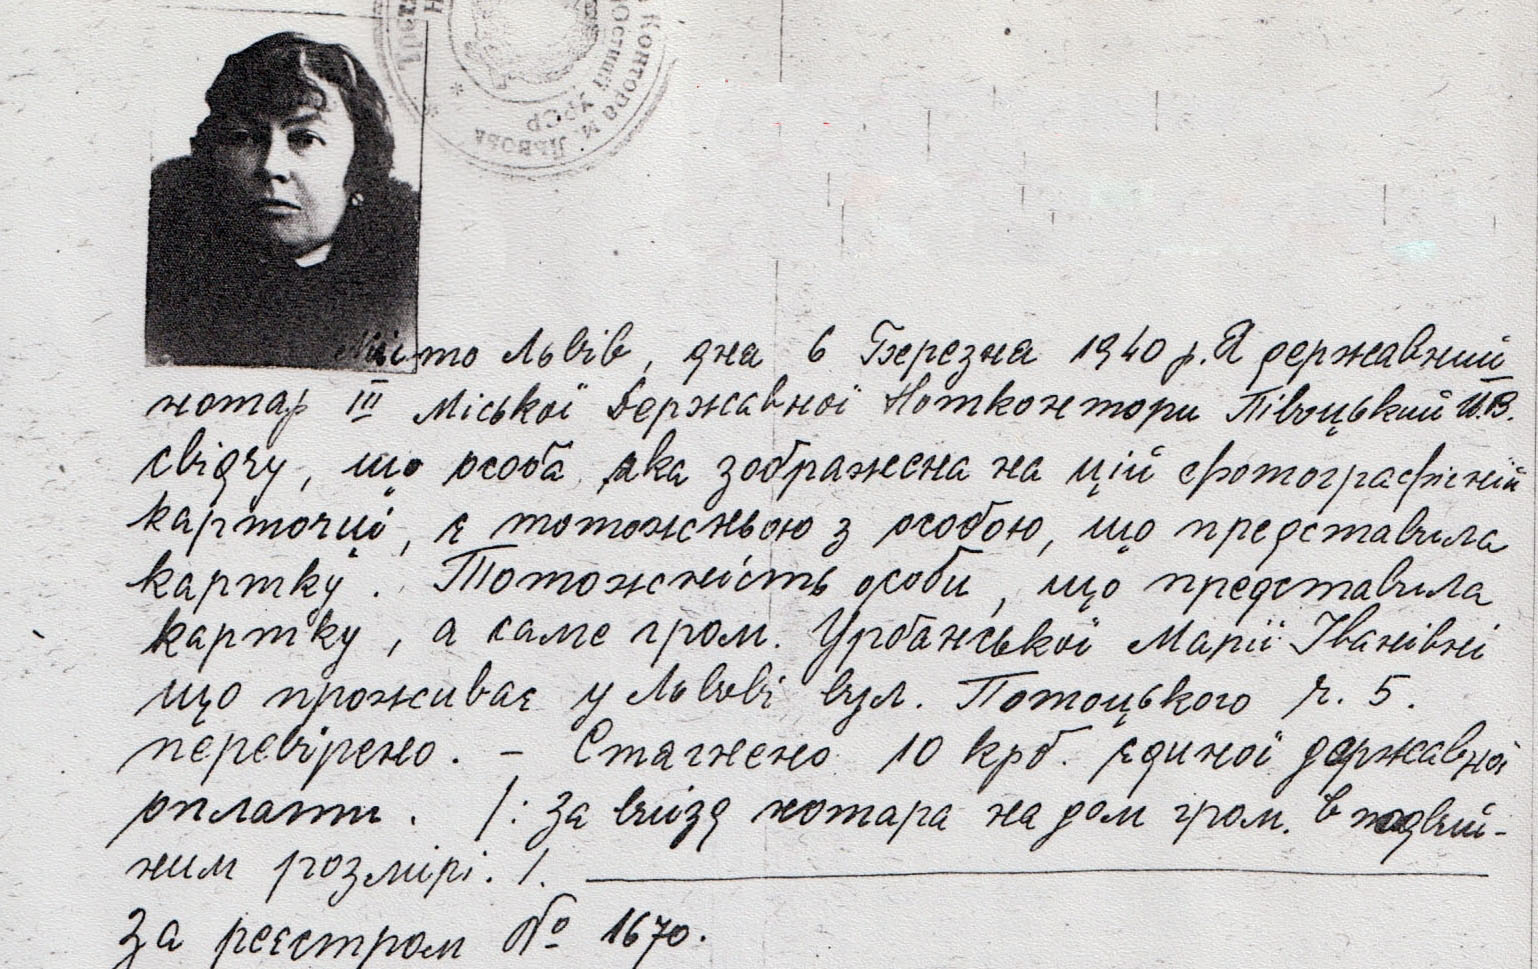 Контора м. Львова
Юстиції УРСР
Місто Львів, дна 6 Березна 1940 р. Я державний
нотар III Міської Державної Ноткontори Півоцький И.В.
свідчу, що особа яка зображена на цій фотографічній
карточці, є тотожньою з особою, що представила
картку. Тотожність особи, що представила
картку, а саме гром. Урбанської Марії Іванівні
що проживає у Львові вул. Потоцького ч. 5.
перевірено. – Стягнено 10 крб. єдиної державної
оплати. /: За виїзд нотара на дом гром. в подвій-
ним розмірі. /.
За реєстром № 1670.